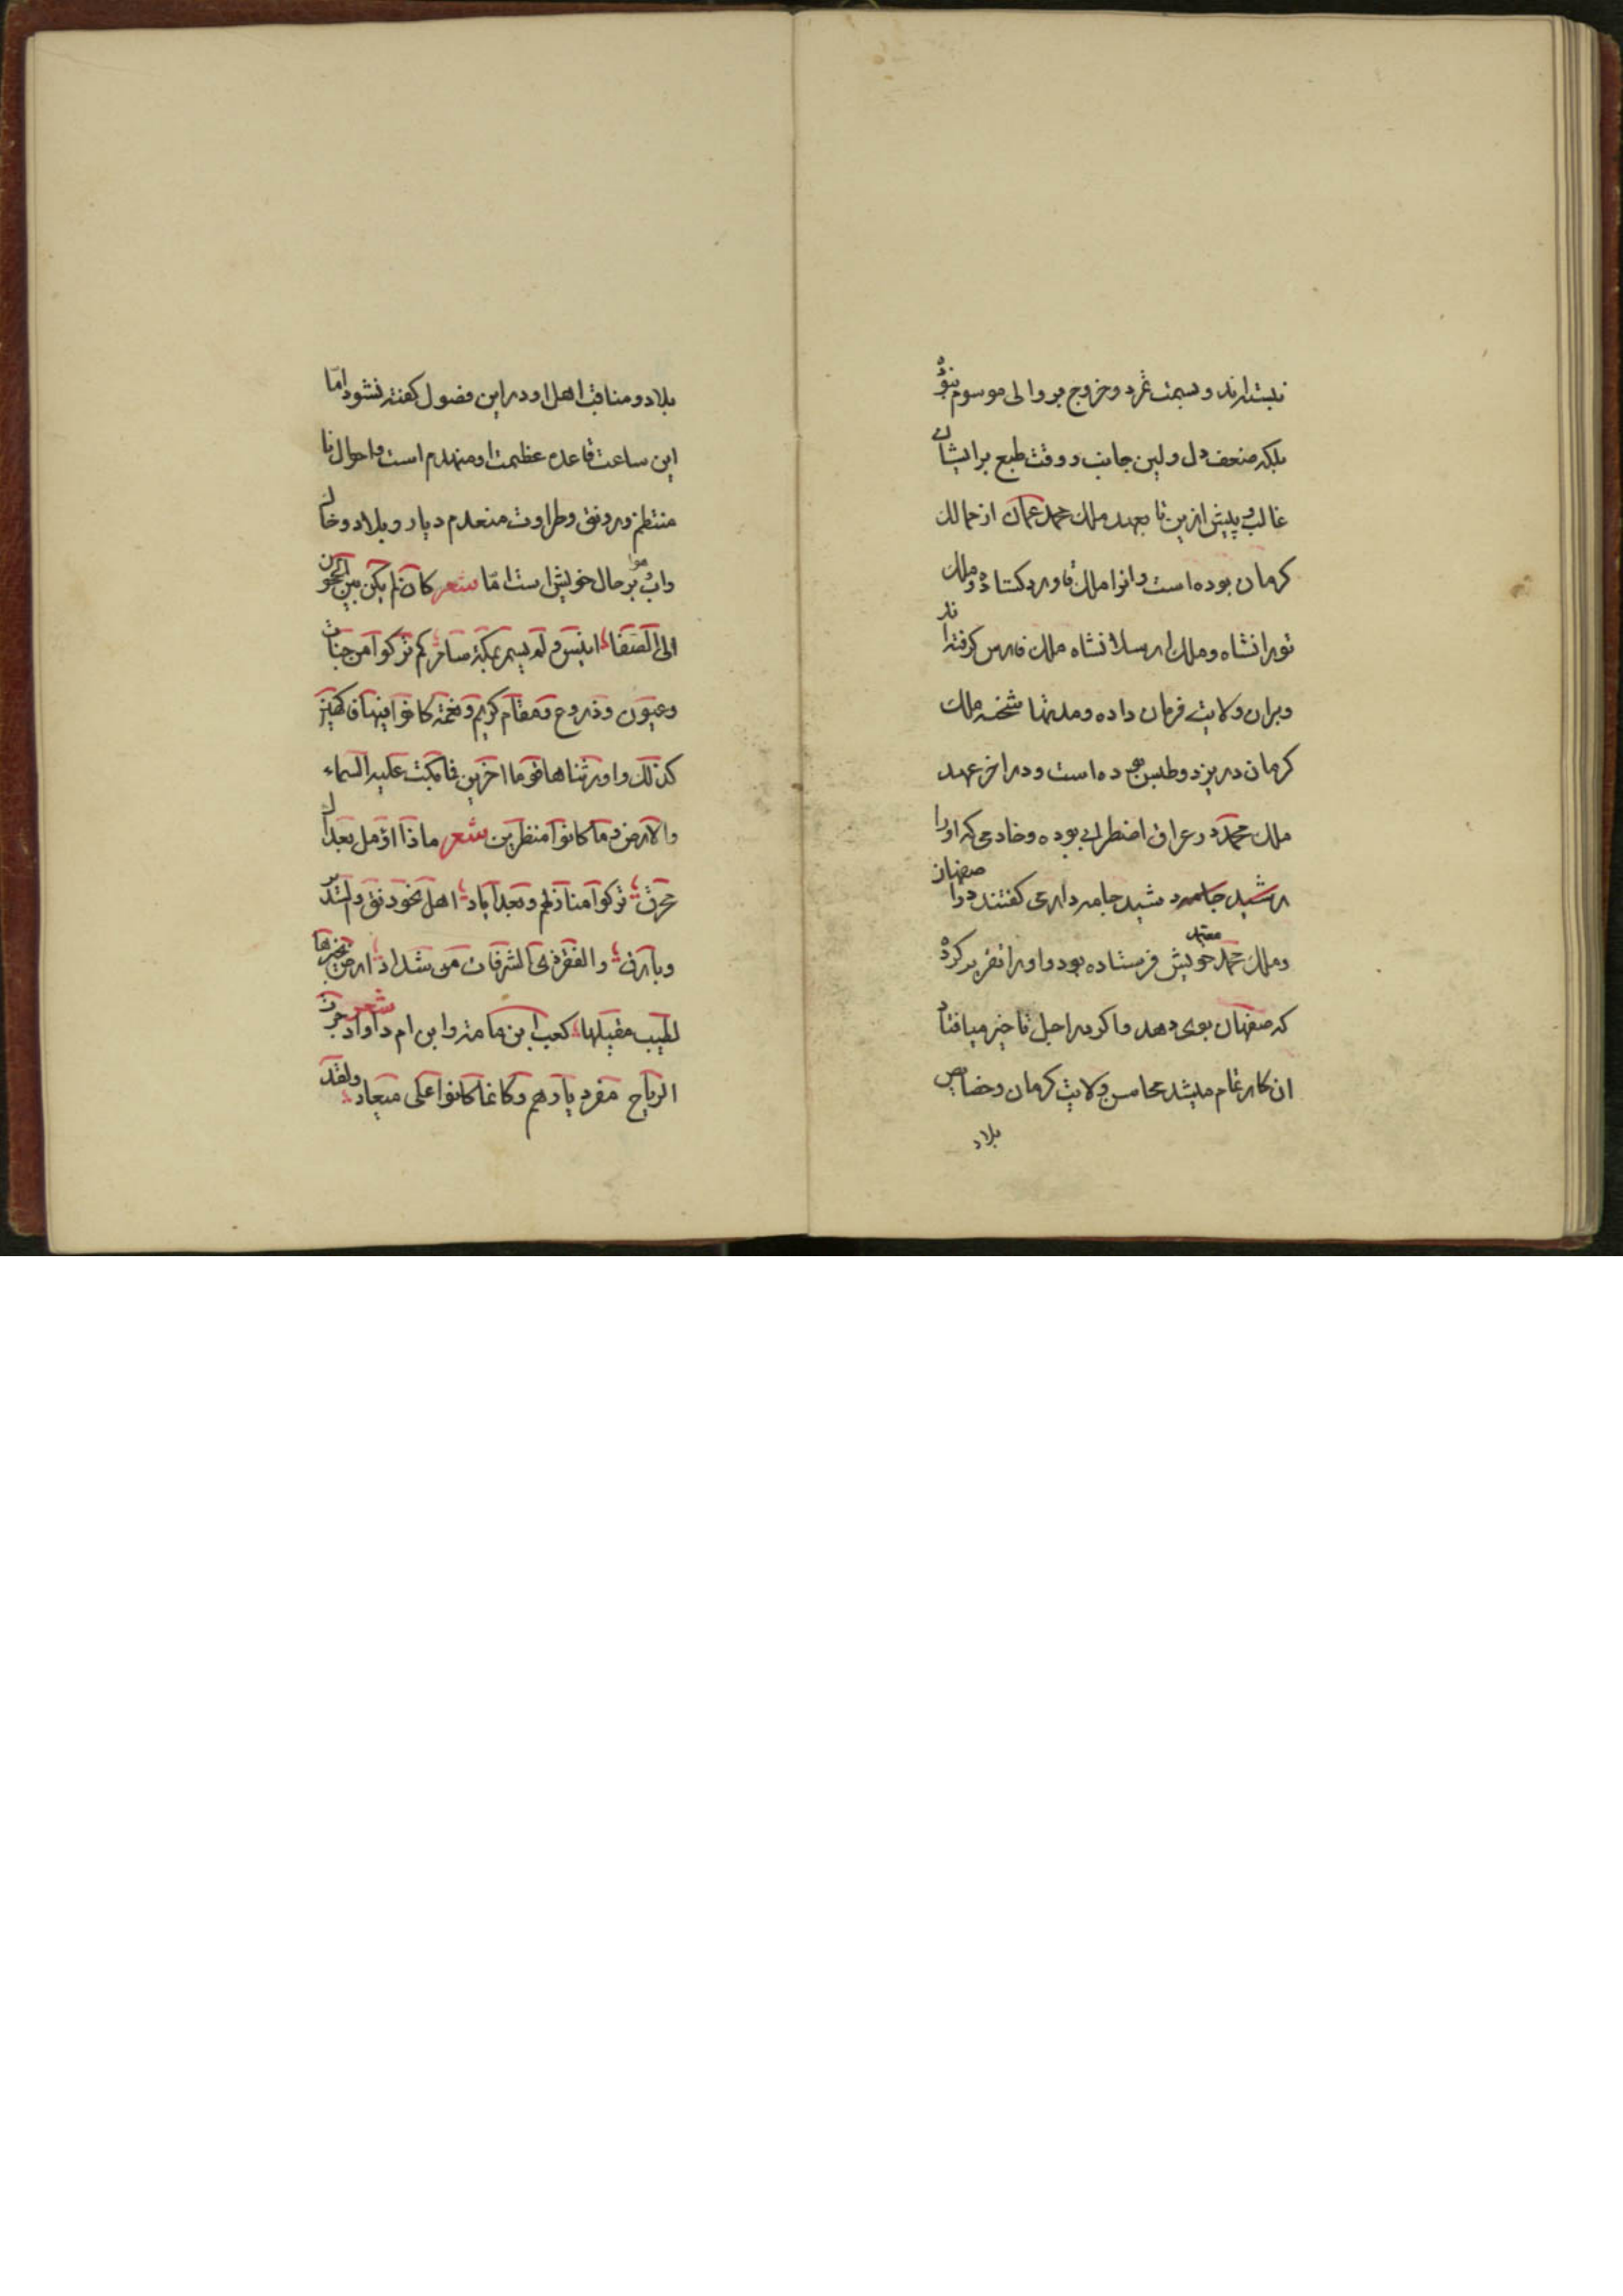 نیستارند و بسمت تمرد و خروج بر والی موسوم نبوده
بلکه ضعف دل و لین جانب و وقت طبع برایشان
غالب و پیش ازین تا بعهد ملک محمد عمان از ممالک
کرمان بوده است و انرا ملک قاورد کشاده و ملک
تورانشاه و ملک ارسلانشاه ملک فارس کرفته اند
و بران ولایت فرمان داده و مدتها شحنه ملک
کرمان در یزد و طبس بوده است و در اخر عهد
ملک محمد در عراق اضطرابی بوده و خادمی که او را
رشید جامه دارمی کفتند در اصفهان
و ملک محمد معتمد خویش فرستاده بود و او را تقریر کرده
که صفهان بوی دهد و اکر در اجل تاخیر میافتاد
ان کار تمام میشد محاسن ولایت کرمان و خصایص
بلاد
بلاد و مناقب اهل او در این فصول کفته نشود اما
این ساعت قاعده عظمت او منهدم است و احوال نا
منتظم و رونق و طراوت منعدم دیار و بلاد و خاک
واب و هوا بر حال خویش است اما شعر کان لم یکن بین الحجون
الی الصفا انیس و لم یسمر بمکة سامر کم ترکوا من جنات
وعیون وزروع ومقام کریم ونعمة کانوا فیها فاکهین
کذلک واورثناها قوما اخرین فما بکت علیهم السماء
والارض وما کانوا منظرین شعر ماذا اؤمل بعد ال
محرق ترکوا منازلهم وبعد ایاد اهل الخورنق والسدیر
وبارق والقصر ذی الشرفات من سنداد ارض تخیرها
لطیب مقیلها کعب ابن مامة وابن ام داواد شعر جرت
الریاح مقر دیارهم وکانما کانوا علی میعاد ولقد